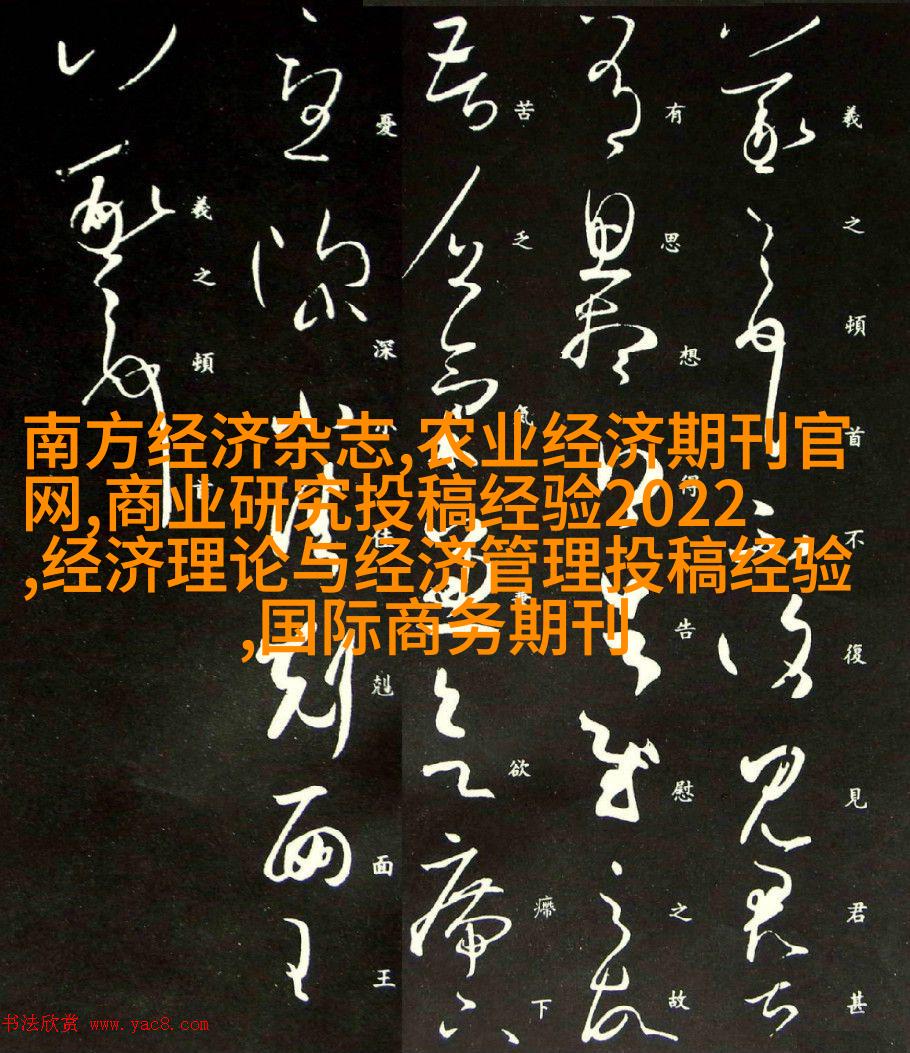 南方经济杂志,农业经济期刊官
网,商业研究投稿经验2022
,经济理论与经济管理投稿经验
,国际商务期刊
羲之頓首不復見君甚
有思想得告慰之故
苦乏氣欲㿃下
憂深佳剋面王
羲之頓首
书法欣赏 www.yac8.com